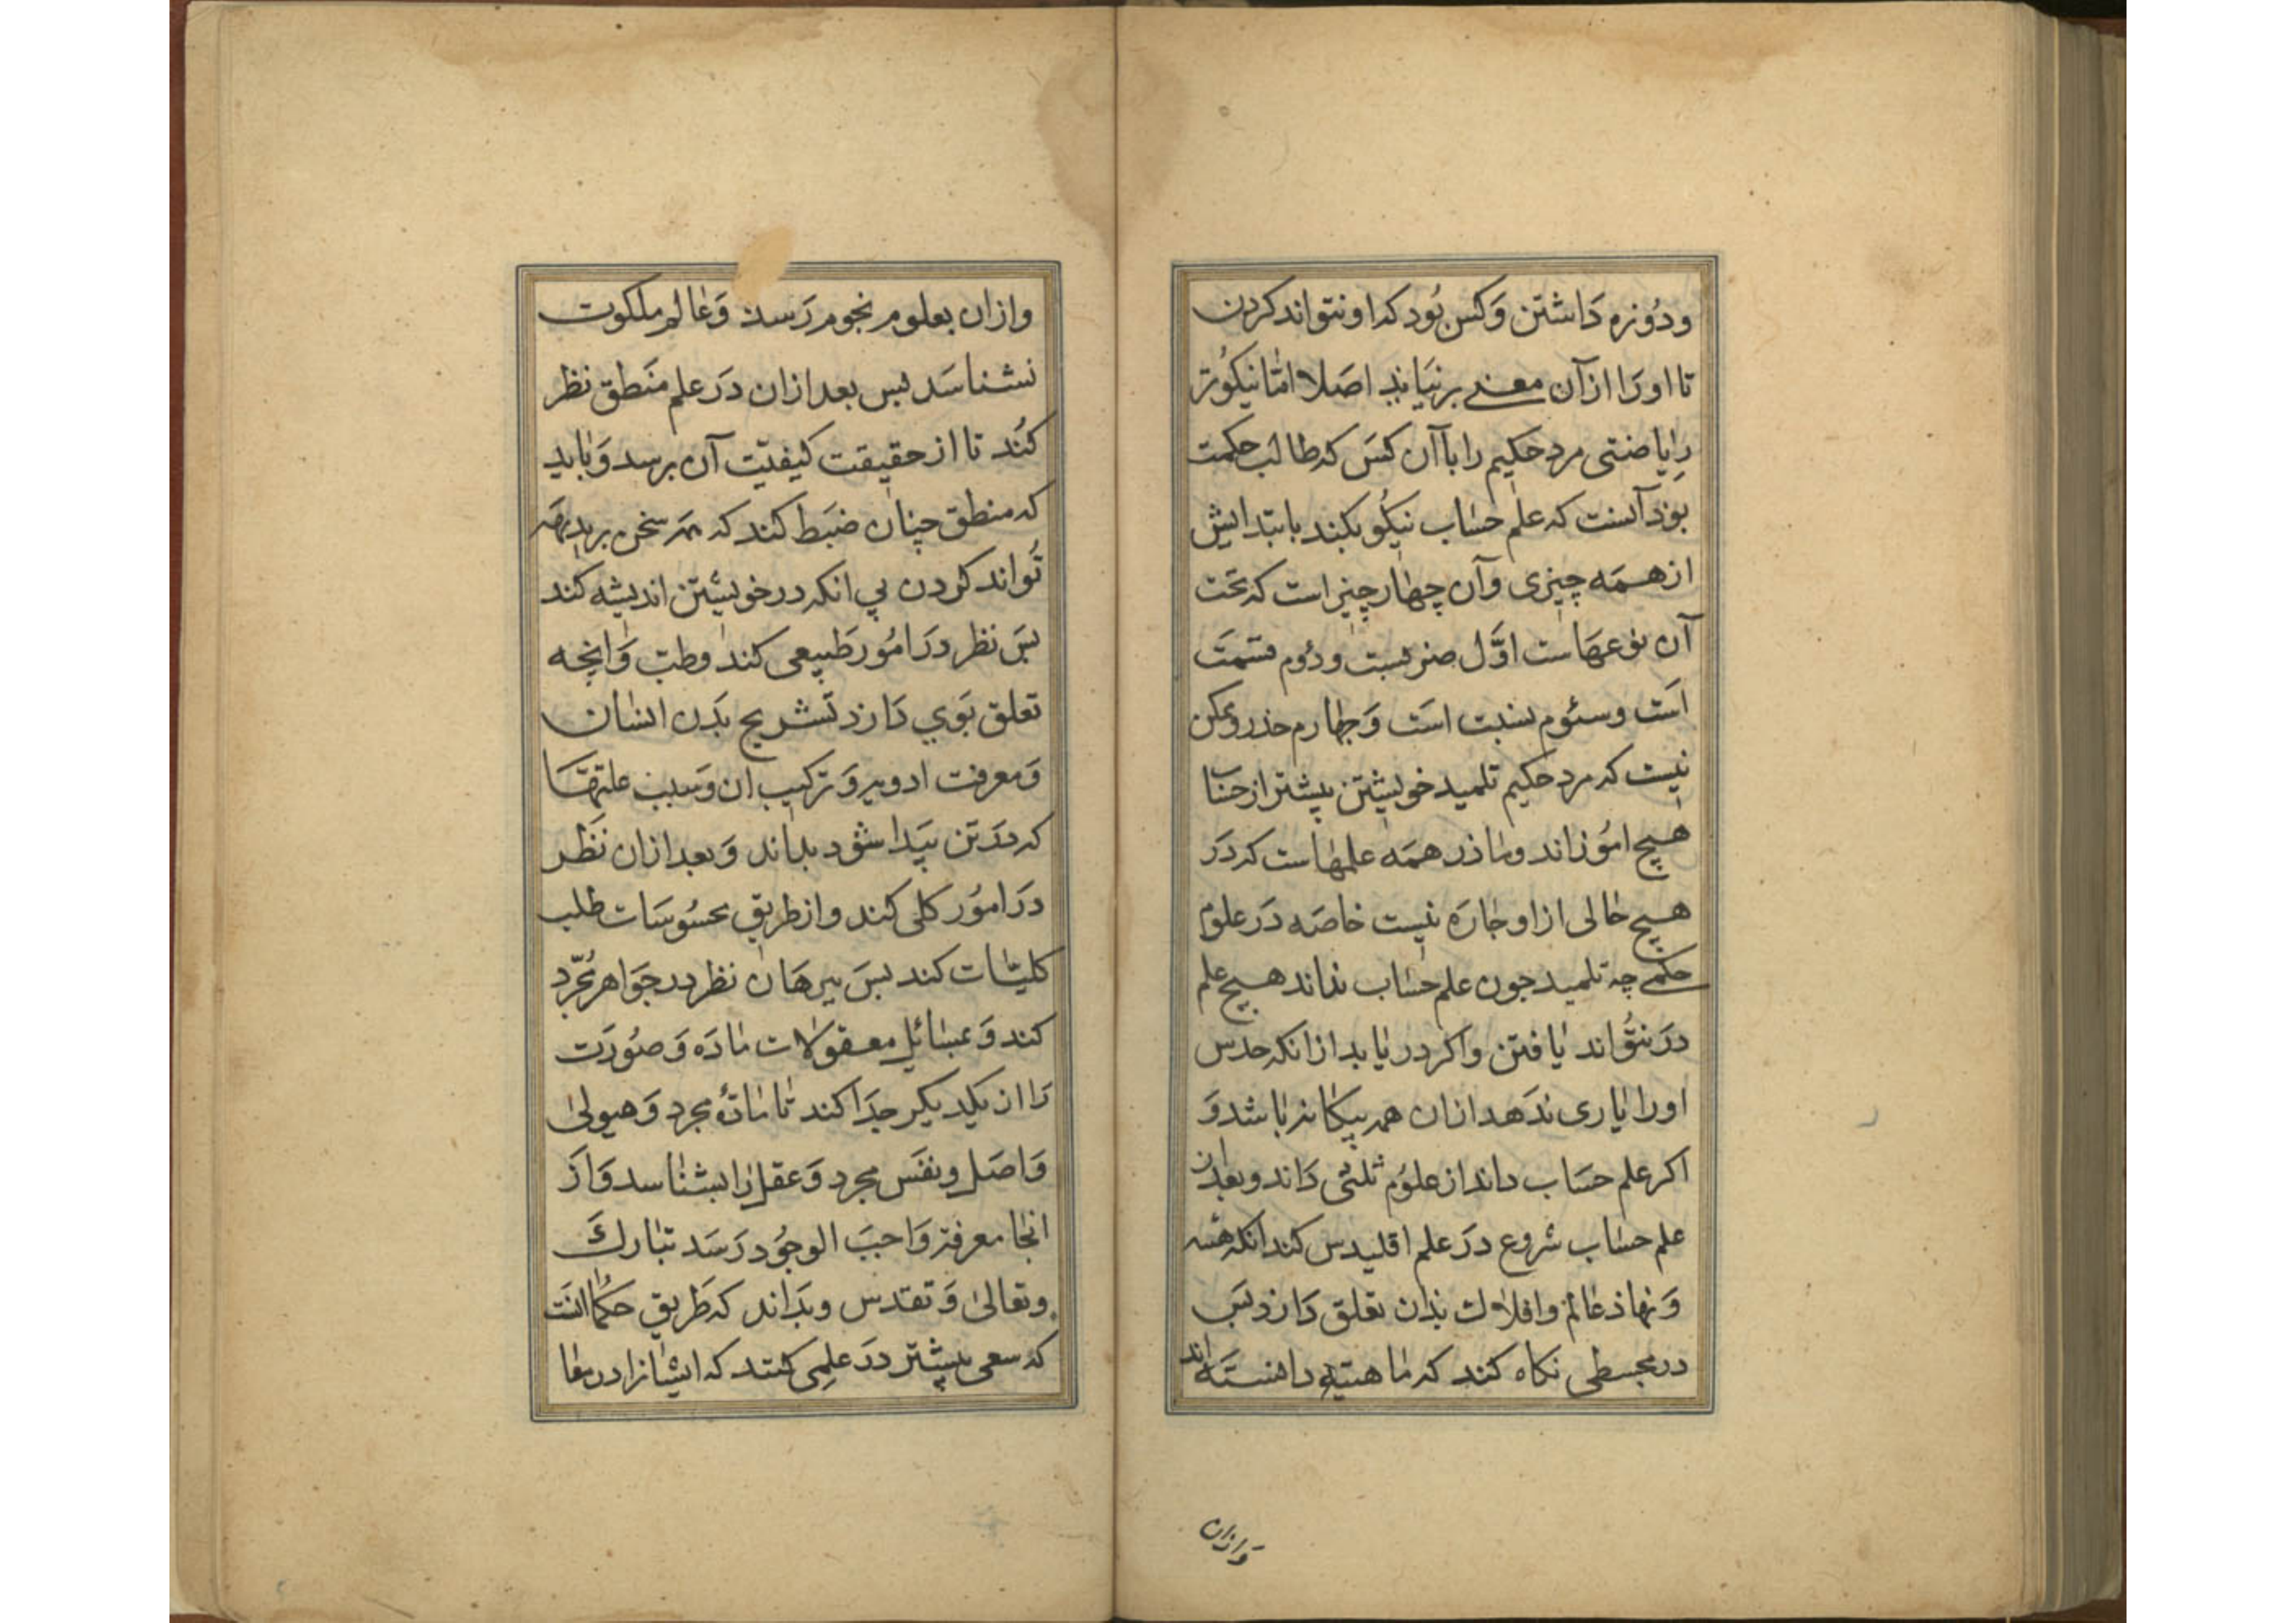 ودُوزه دَاشتن وَكس بُود كه او نتواند كردن
تا اورَا ازآن معنے برنیَاند اصَلا امّا نیکوُتر
رِیاضتی مرد حکیم را باآن کسَ که طالب حکمت
بوذ آنست که علم حسَاب نیکُو بکند بابتدایش
از همَه چیزی وآن چهٰار چیز است که تحَت
آن نوعهَاست اوَّل ضربست ودوُم قسمَت
اسَت وسئوم نسبت اسَت وَجهٰارم جذر وممکن
نیست که مرد حکیم تلمیذ خویشتن پیشتر از حسَاب
هیچ امُوزاند ومٰاذر همَه علمهٰاست که دَر
هیچ حٰالی ازاو جٰارَه نیست خاصَه دَر علوم
حکمے چه تلمیذ جون علم حسَاب نداند هیچ علم
دَر نتُواند یٰافتن واکر دریٰابد ازانکه حدس
اورا یٰاری ندَهد ازان هم بیکٰانه بٰاشد وَ
اکر علم حسَاب داند از علوُم ثلثی دَاند وبعدازان
علم حسٰاب شروع دَر علم اقلیدس کند انکه هَیئه
وَنهاذ عٰالم وافلاك بذان تعلق دَارذ بسَ
در مجسطی نکاه کند که مٰاهیته دانستَه اند
وَازان
وازان بعلوم نجوم رَسد وَعٰالم ملکوت
نشناسَد بس بعد ازان دَر علم منَطق نظر
کنُد تا از حقیقت کیفیّت آن برسد وَبٰاید
که منطق چنان ضبَط کند که هر سخن بر بدیهَه
توُاند کردن بي انکه در خویشتن اندیشه کند
بسَ نظر دَر امُور طَبیعی کند وطبّ وَانچه
تعلق بوَي دَارذ تَشریح بدَن انسَان
وَمعرفت ادویه وَترکیب ان وَسبب علتهَا
که دَر تن بیَدا شوَد بداند وَبعد ازان نَظر
دَر امُور کلی کند وازطریق محسُوسَات طلب
کلیّات کند بسَ ببرهَان نظر در جوَاهر مُجَّرد
کند وَ بمسَائل معقولات مٰادَه وَصوُرَت
رَا از یکدیکر جدَا کند تٰا مٰادّهٔ مجرد وَهیولیٰ
وَاصَل ونفسَ مجرد وَعقل رٰا بشنٰاسد وَاز
انجٰا معرفة وَاجبَ الوجوُد رَسَد تبٰارك
وتعالیٰ وَتقدس وبدَاند که طَریق حکُما انسَت
که سعی بیشتر دَر علمِی کنند که ایشٰانرا در معٰا